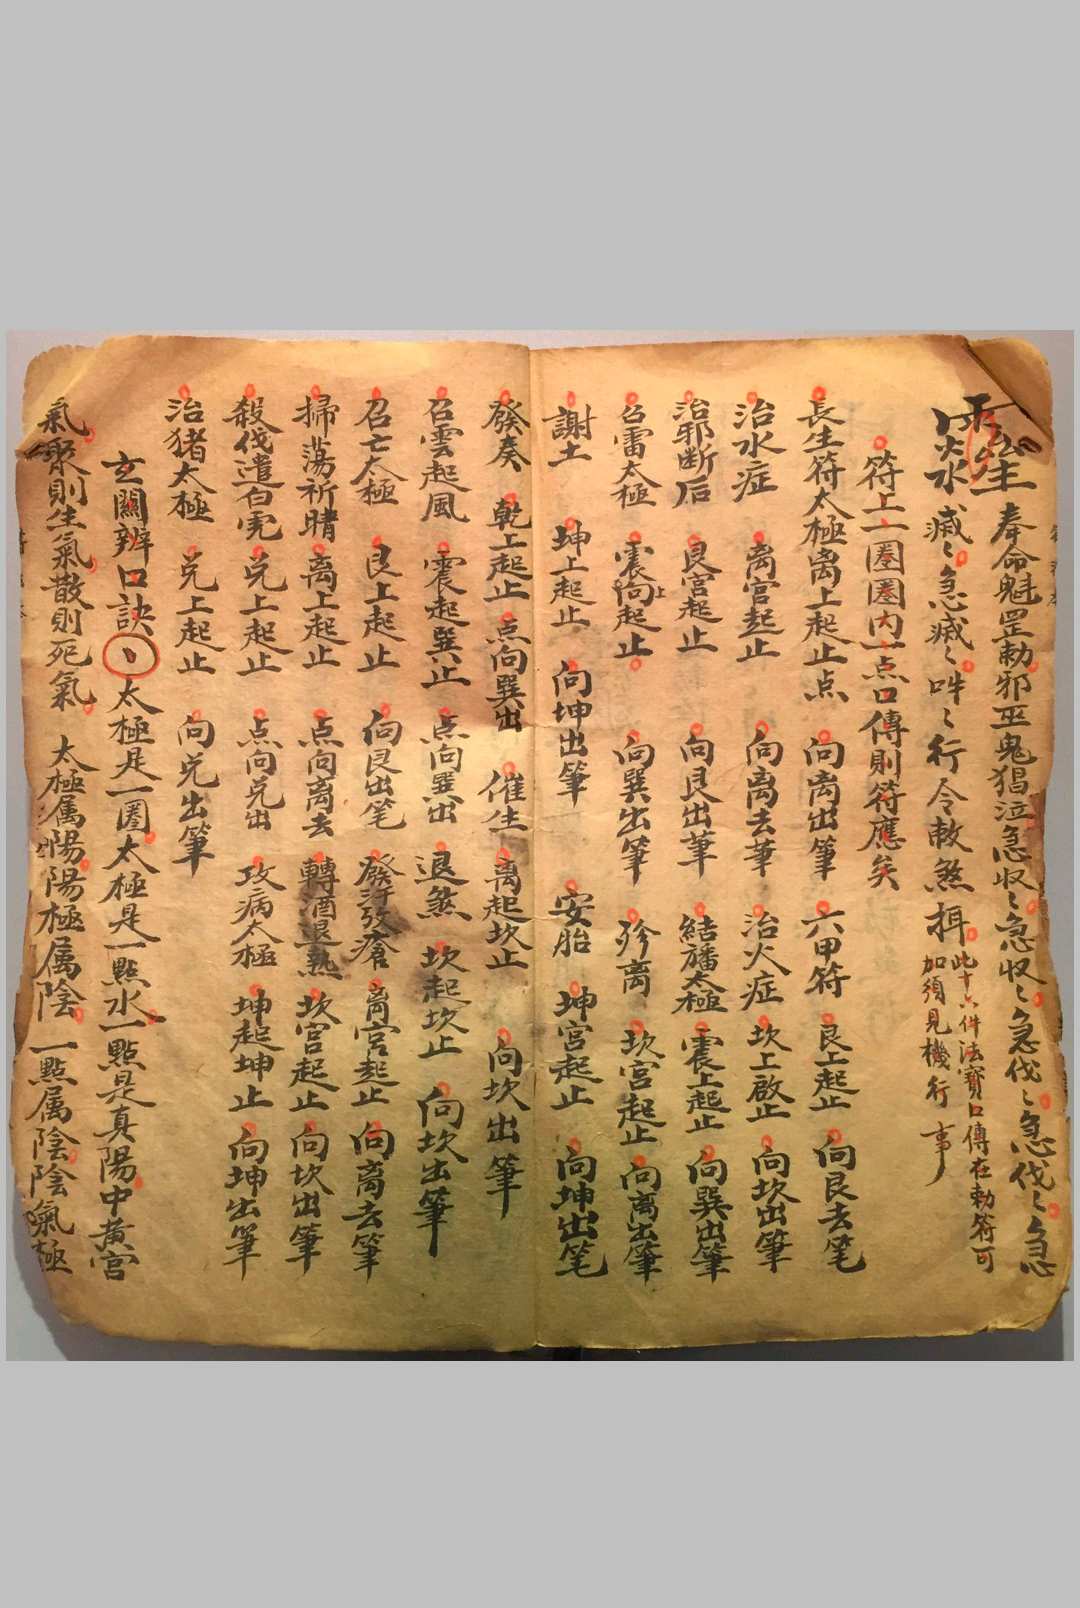 奉命魁罡勅邪巫鬼猖泣急収〻急収〻急伐〻急伐〻急
烕〻急烕〻吽〻行令敕煞揖
此十六件法寶口傳在勅符可
加須見機行事
符上一圈圈内一点口傳則符應矣
長生符太極离上起止点 向离出筆 六甲符 艮上起止 向艮去笔
治水症 离宫起止 向离去筆 治火症 坎上啟止 向坎出筆
治邪断后 艮宮起止 向艮出筆 結旙太極 震上起止 向巽出筆
召雷太極 震上向起止 向巽出筆 疹离 坎宮起止 向离出筆
謝土 坤上起止 向坤出筆 安胎 坤宮起止 向坤出笔
發奏 乾上起止 点向巽出 催生 离起坎止 向坎出筆
召雲起風 震起巽止 点向巽出 退煞 坎起坎止 向坎出筆
召亡太極 艮上起止 向艮出笔 發汗發瘡 离宮起止 向离去筆
掃蕩祈晴 离上起止 点向离去 轉酒退熱 坎宮起止 向坎出筆
殺伐遣白虎 兑上起止 点向兑出 攻病太極 坤起坤止 向坤出筆
治猪太極 兑上起止 向兑出筆
玄關辨口訣 太極是一圈太極是一點水一點是真陽中黄宮
氣聚則生氣散則死氣 太極属陽陽極属陰一點属陰陰氣極